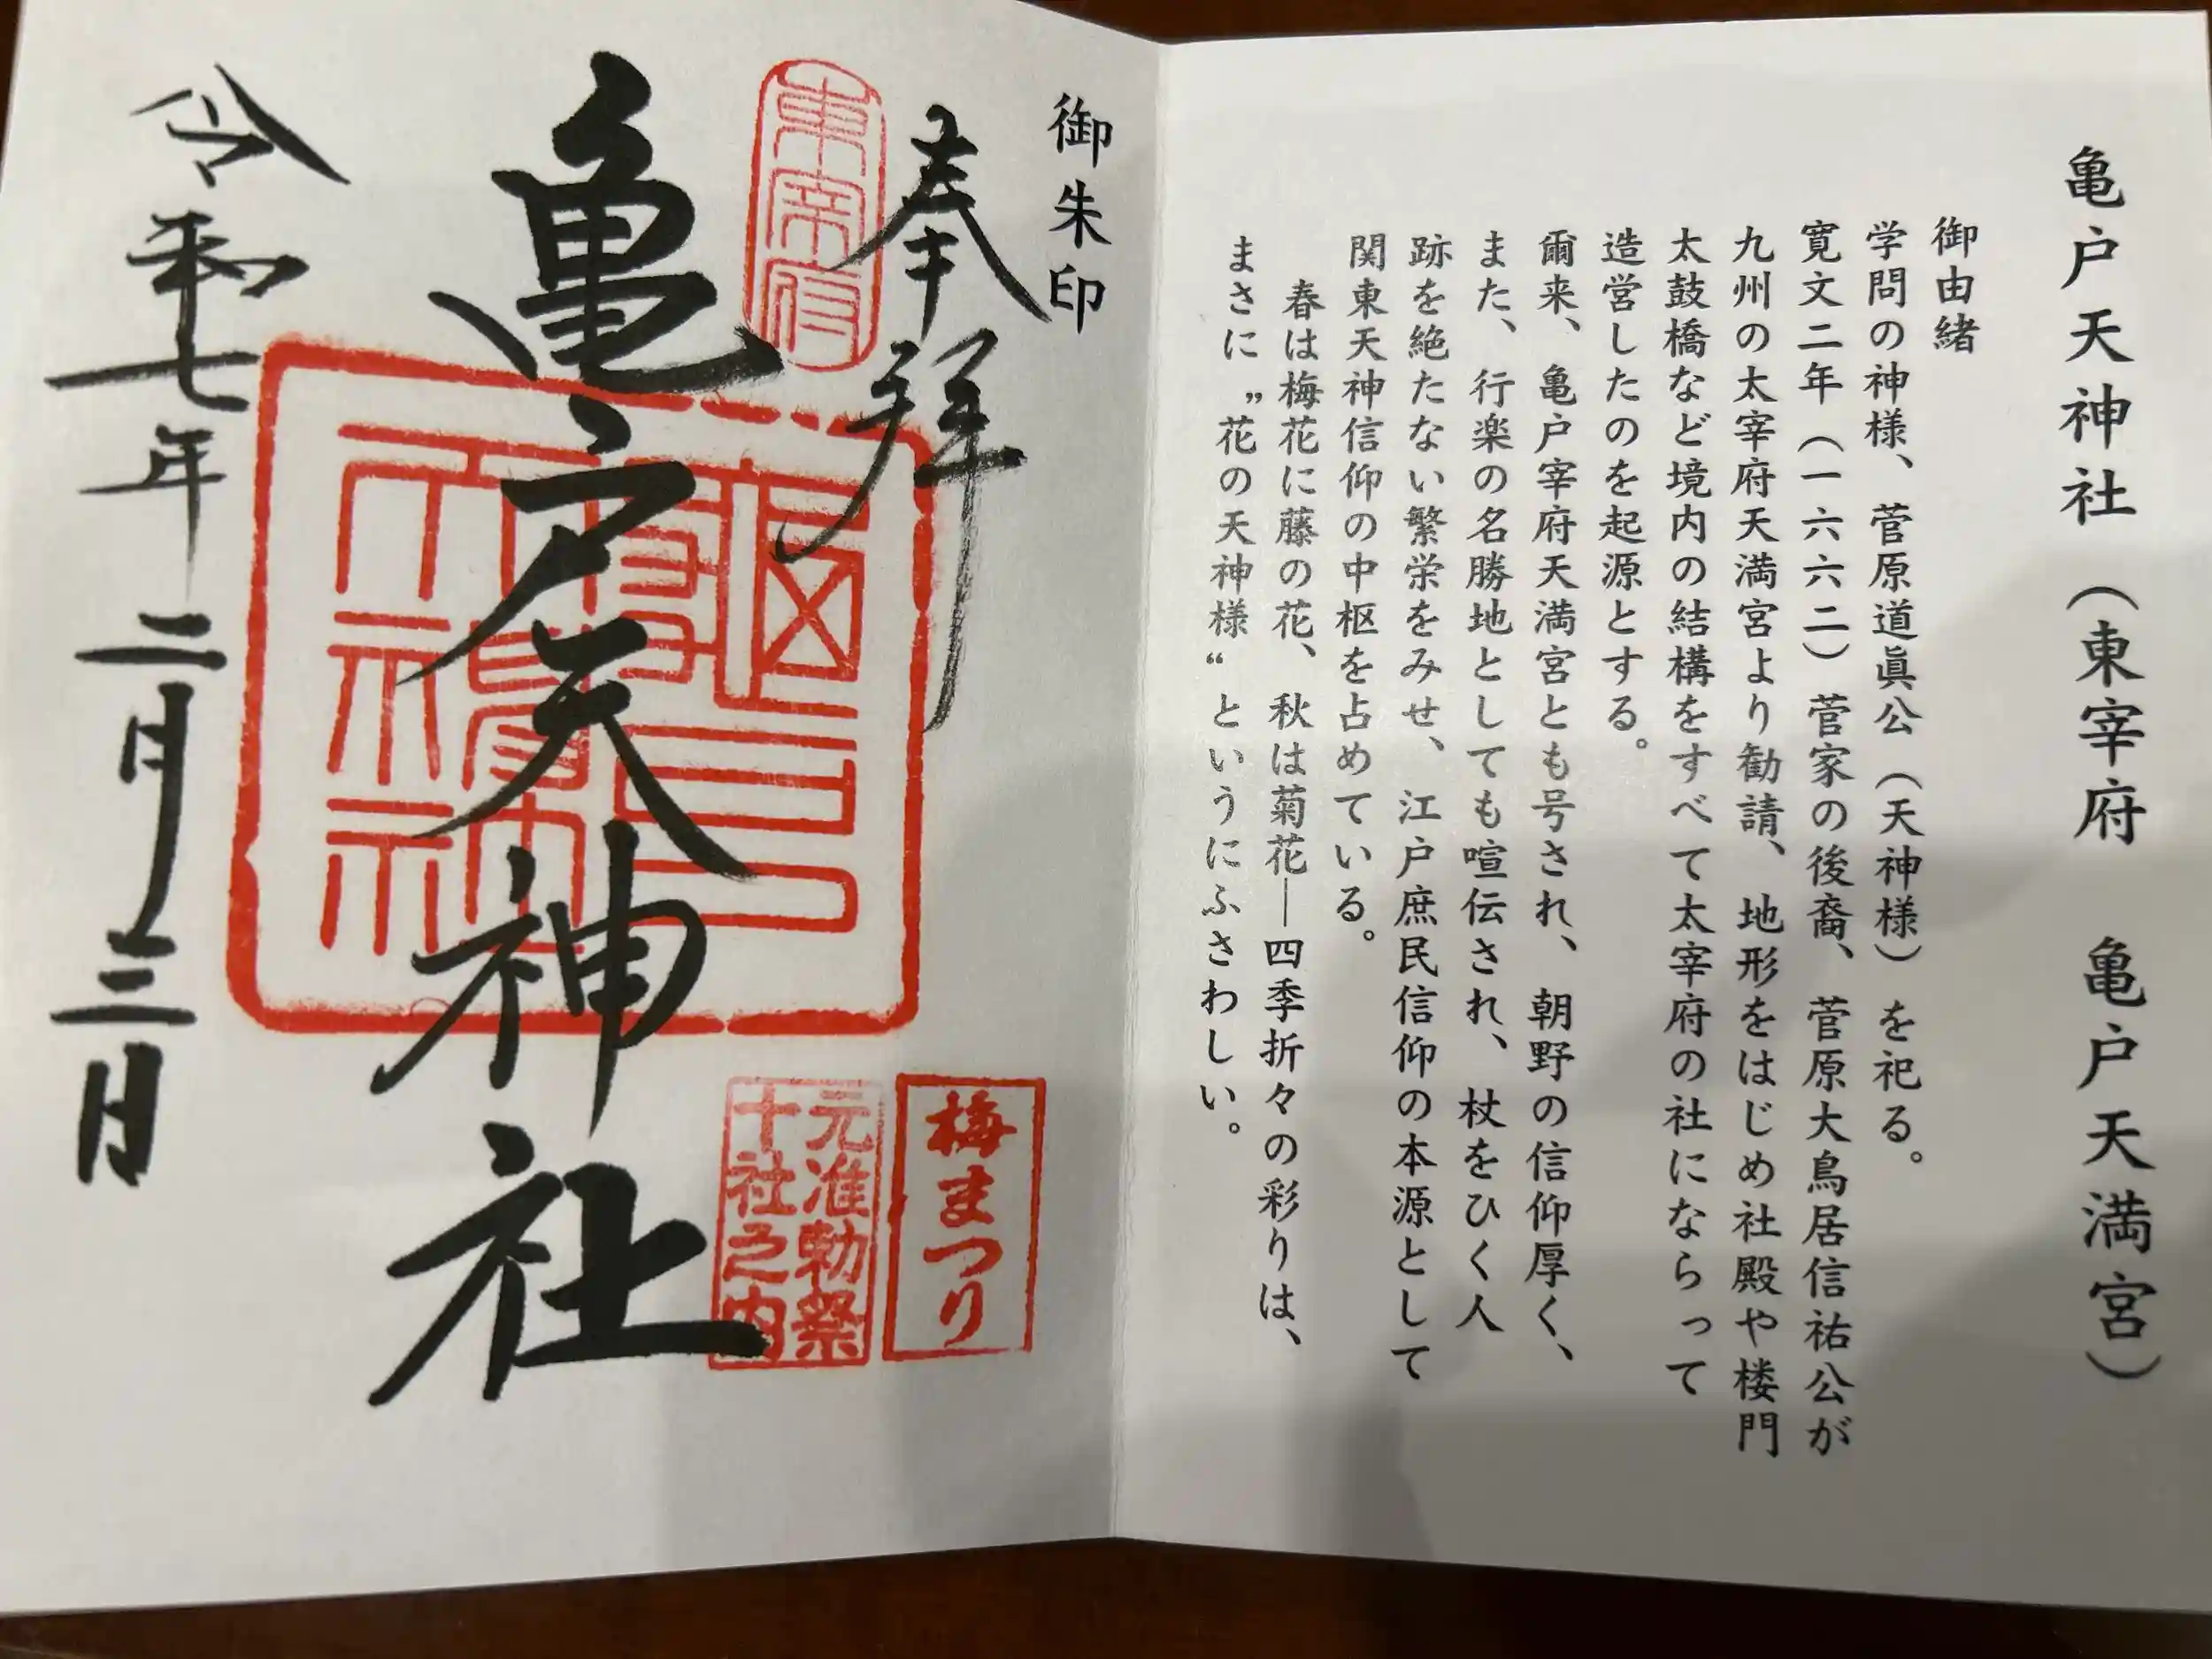 亀戸天神社（東宰府　亀戸天満宮）
御由緒
学問の神様、菅原道眞公（天神様）を祀る。
寛文二年（一六六二）菅家の後裔、菅原大鳥居信祐公が
九州の太宰府天満宮より勧請、地形をはじめ社殿や楼門
太鼓橋など境内の結構をすべて太宰府の社にならって
造営したのを起源とする。
爾来、亀戸宰府天満宮とも号され、朝野の信仰厚く、
また、行楽の名勝地としても喧伝され、杖をひく人
跡を絶たない繁栄をみせ、江戸庶民信仰の本源として
関東天神信仰の中枢を占めている。
春は梅花に藤の花、秋は菊花―四季折々の彩りは、
まさに〝花の天神様〟というにふさわしい。
御朱印
奉拝
東宰府
梅まつり
元准勅祭
十社之内
亀戸天神社
令和七年二月三日